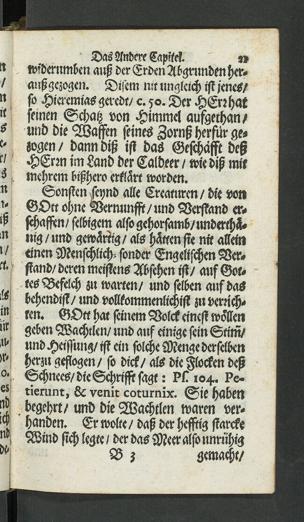 Das Andere Capitel. 21
widerumben auß der Erden Abgrunden her-
außgezogen. Disem nit ungleich ist jenes/
so Hieremias geredt/ c. 50. Der HErz hat
seinen Schatz von Himmel aufgethan/
und die Waffen seines Zornß herfür ge-
zogen/ dann diß ist das Geschäfft deß
HErzn im Land der Caldeer/ wie diß mit
mehrem bißhero erklärt worden.
Sonsten seynd alle Creaturen/ die von
GOtt ohne Vernunfft/ und Verstand er-
schaffen/ selbigem also gehorsamb/ underthä-
nig/ und gewärtig/ als hätten sie nit allein
einen Menschlich- sonder Engelischen Ver-
stand/ deren meistens Absehen ist/ auf Got-
tes Befelch zu warten/ und selben auf das
behendist/ und vollkommenlichist zu verrich-
ten. GOtt hat seinem Volck einest wöllen
geben Wachtlen/ und auf einige sein Stim̃/
und Heissung/ ist ein solche Menge derselben
herzu geflogen/ so dick/ als die Flocken deß
Schnees/ die Schrifft sagt: Ps. 104. Pe-
tierunt, & venit coturnix. Sie haben
begehrt/ und die Wachtlen waren ver-
handen. Er wolte/ daß der hefftig starcke
Wind sich legte/ der das Meer also unrühig
B 3 gemacht/